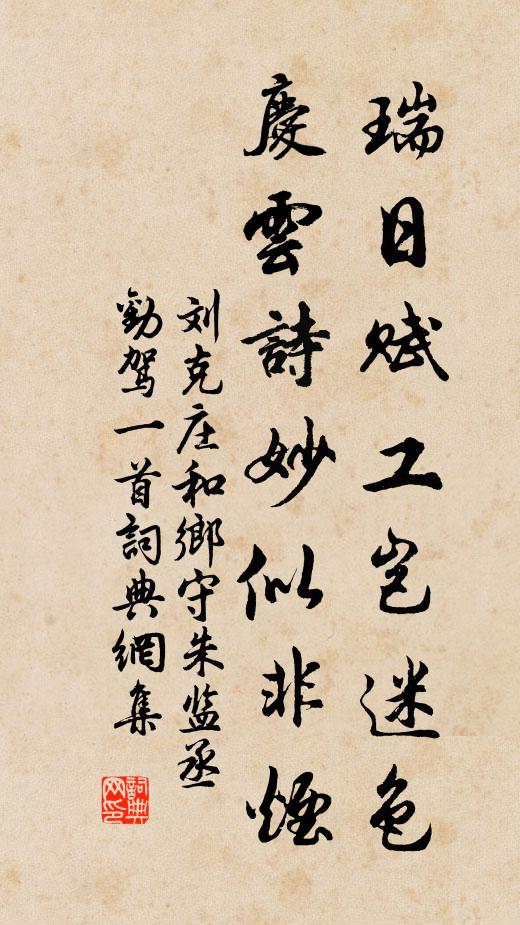 瑞日赋工岂迷色
慶雲詩妙似非煙
刘克庄和鄉守朱监丞
勸驾一首詞典網集
詞典网印